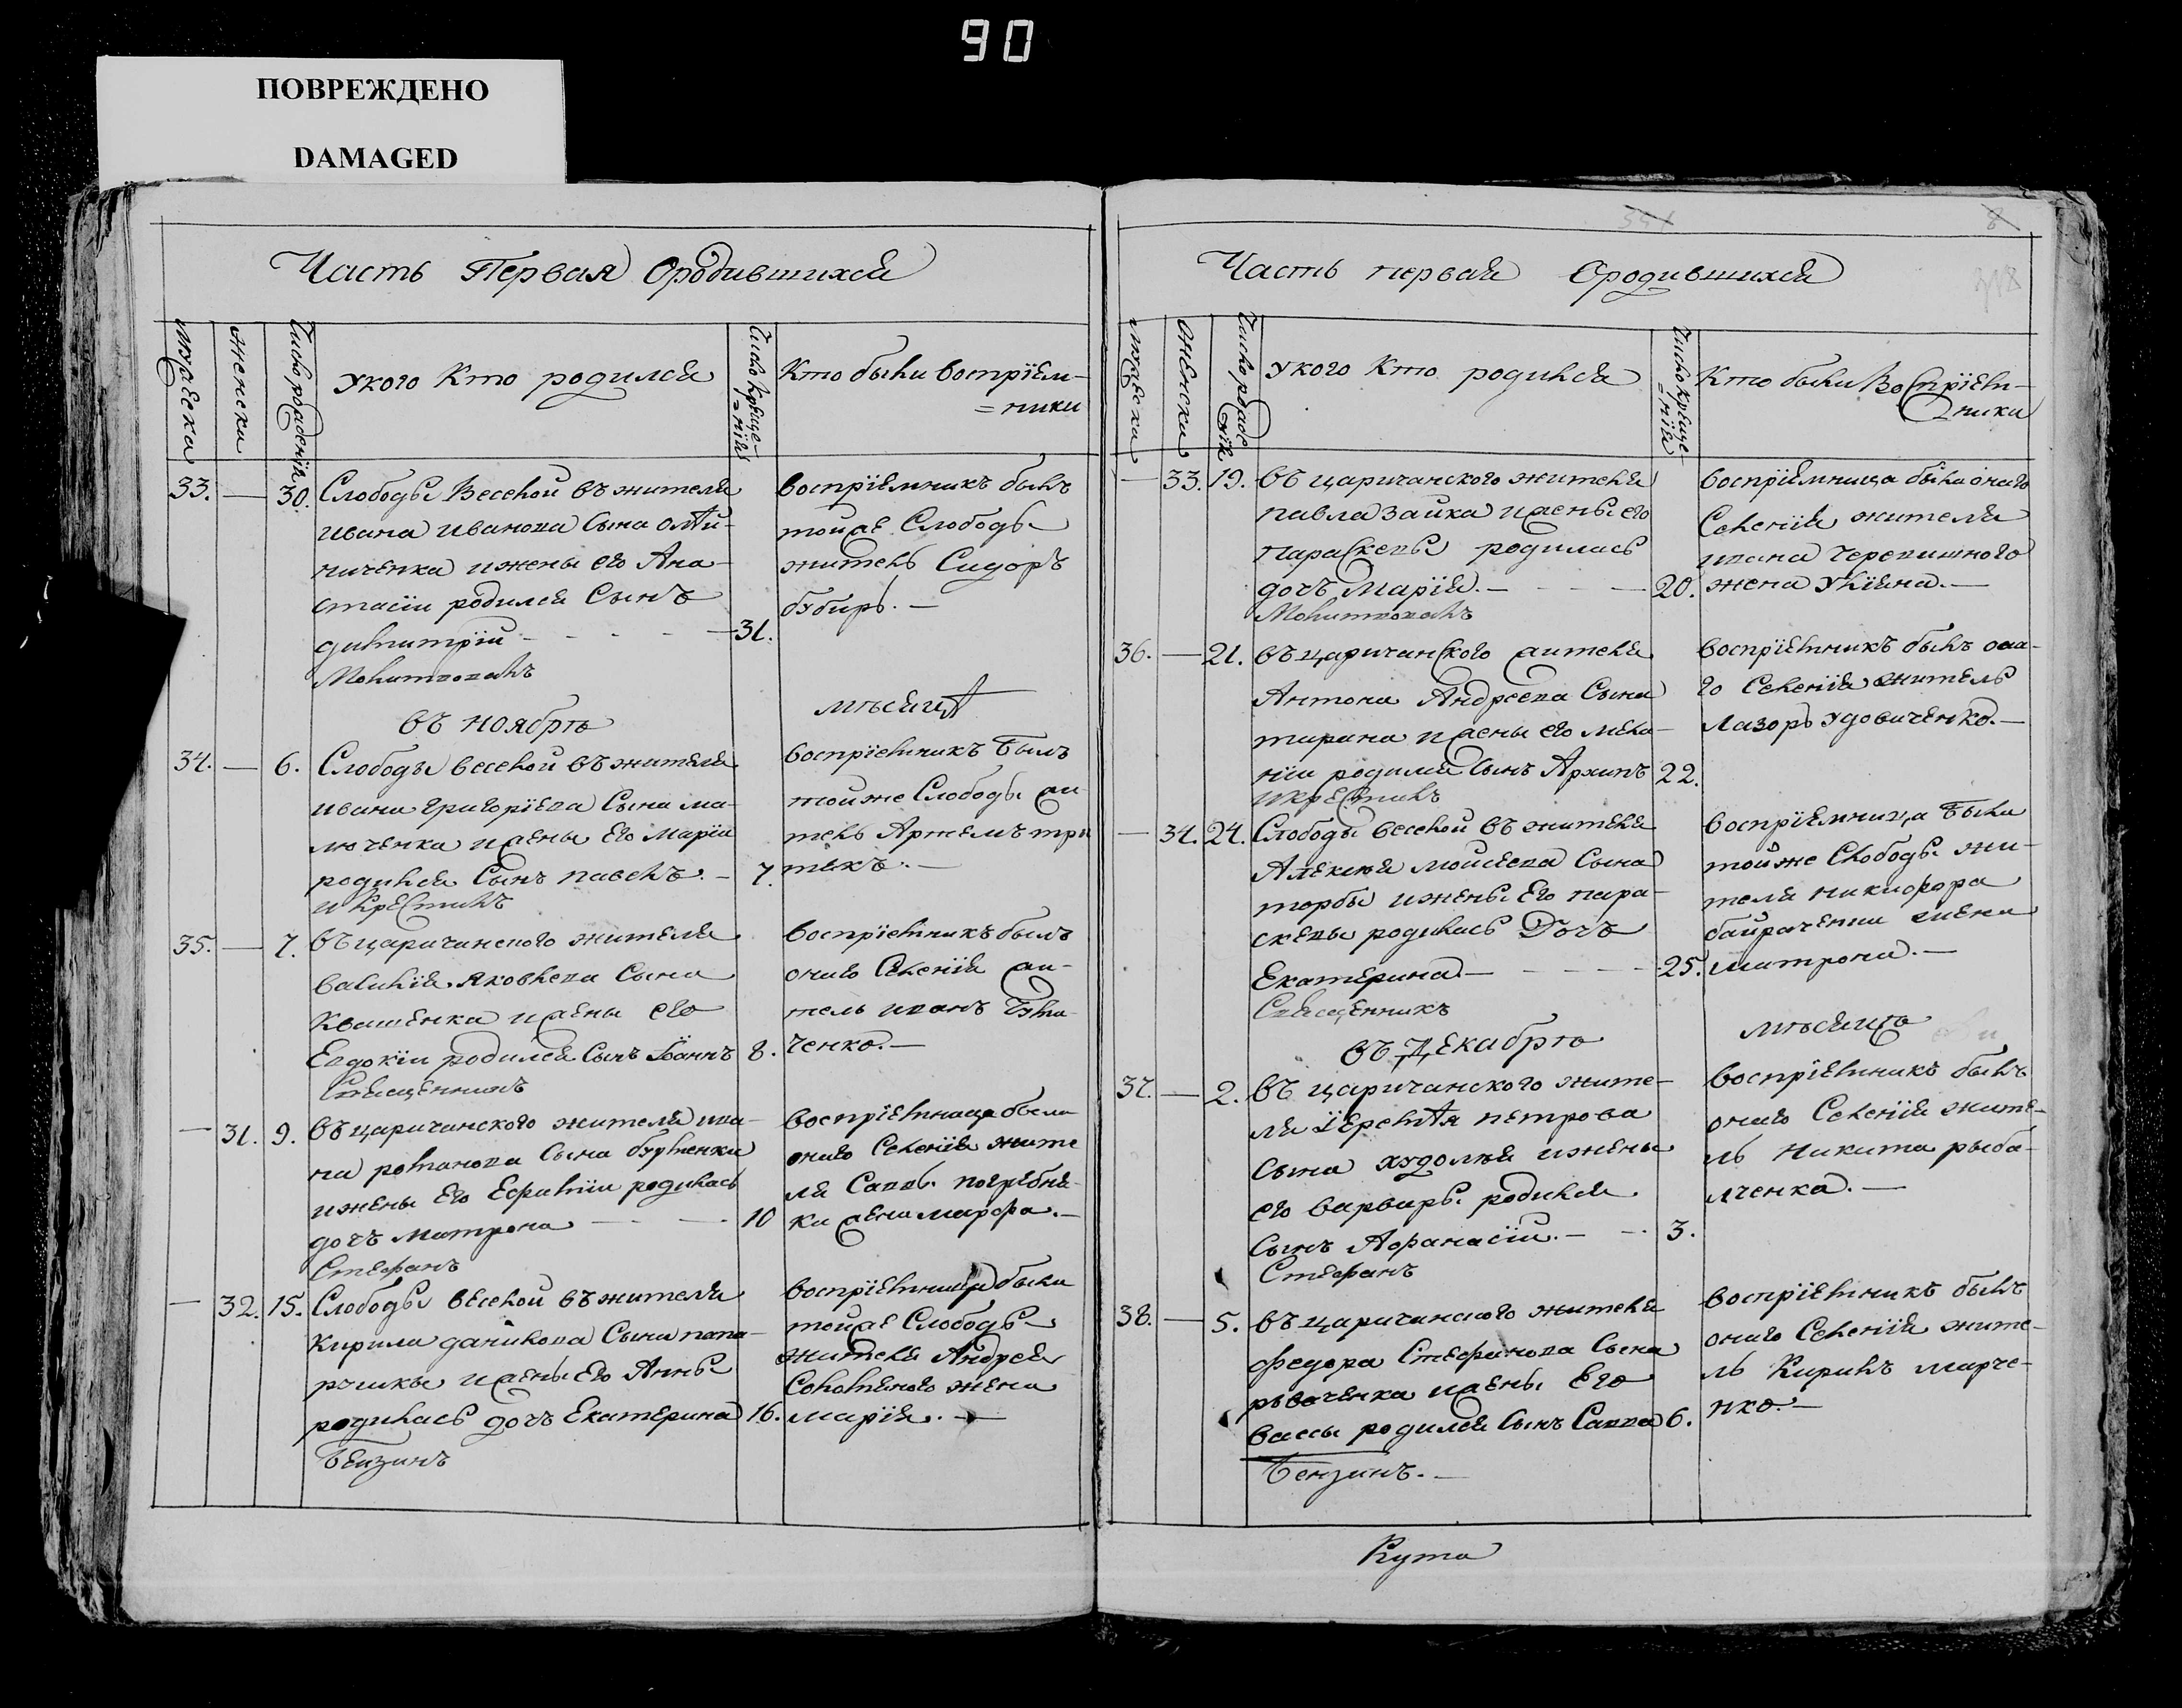 90
ПОВРЕЖДЕНО
DAMAGED
Часть Первая Ородившихся
мужеска
женска
Число рождения
Укого Кто родился
Число Креще-
=нїя
Кто были восприїем-
=ники
33. — 30. Слободы Веселой въ жителя
ивана иванова Сына
ниченка ижены его Ана-
стасїи родился Сынъ
димитрїй - - - - — 31.
Молитвовалъ
восприїемникъ былъ
тойже Слободы
житель Сидоръ
бубиръ. —
въ ноябрѣ
мѣсяцѣ
34. — 6. Слободы веселой въ жителя
ивана григорїева Сына ма-
люченка ижены Его Марїи
родился Сынъ павелъ. — 7.
и крестилъ
восприїемникъ Былъ
тойже Слободы жи-
тель Артемъ три
тякъ. —
35. — 7. въ царичанского жителя
василїя яковлева Сына
Квашенка ижены его
Евдокїи родился Сынъ Їоаннъ 8.
Священникъ
восприїемникъ былъ
оного Селенїя жи-
тель иванъ
ченко. —
— 31. 9. въ царичанского жителя ива-
на романова Сына бутенка
ижены Его Ефимїи родилась
дочъ матрона — - — - 10
Стефанъ
восприїемница была
оного Селенїя жите
ля Саввы погребня-
ка жена марфа. —
— 32. 15. Слободы веселой въ жителя
Кирила данилова Сына папа-
рчшкы ижены Его Анны
родилась дочъ Екатерина 16.
Бензинъ
восприїемница была
тойже Слободы
жителя Андрея
Соломеного жена
марїя. —
Часть первая Ородившихся
мужеска
женска
Число рожде
нїя
Укого Кто родился
Число Креще-
=нїя
Кто были Восприїем-
ники
— 33. 19. въ царичанского жителя
павла зайка ижены его
параскевы родилась
дочъ Марїя. — - - — 20.
Молитвовалъ
восприїемница была оного
Селенїя жителя
ивана Черевишного
жена Улїяна. —
36. — 21. въ царичанского жителя
Антона Андреева Сына
тарана ижены его мела-
нїи родился Сынъ Архипъ 22.
и крестилъ
восприїемникъ былъ она-
го Селенїя житель
Лазоръ удовиченко. —
— 34. 24. Слободы веселой въ жителя
Алексѣя мойсеева Сына
торбы ижены Его пара-
скевы родилась Дочъ
Екатерина. — - - - - 25.
Священникъ
восприїемница Была
тойже Слободы жи-
теля никифора
байраченка жена
матрона. —
въ Декабрѣ
мѣсяцѣ
37. — 2. въ царичанского жите-
ля Їеремѣя петрова
Сына худолѣя ижены
его варвары родился
Сынъ Афанасїй. — — 3.
Стефанъ
восприїемникъ былъ
оного Селенїя жите-
ль никита рыба-
лченка. —
38. — 5. въ царичанского жителя
федора Стефанова Сына
рѣвоченка ижены Его
вассы родился Сынъ Савва 6.
Бензинъ. —
восприїемникъ былъ
оного Селенїя жите-
ль Кирилъ марче-
нко. —
Кута